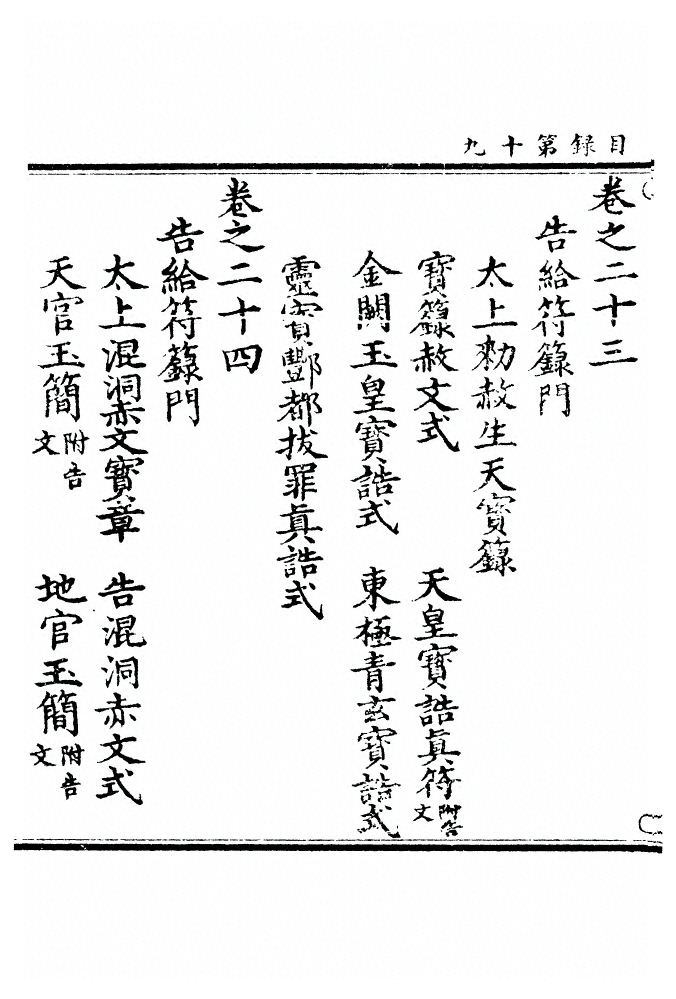 目錄第十九
卷之二十三
告給符籙門
太上勑赦生天寶籙
寶籙赦文式 天皇寶誥眞符附告文
金闕玉皇寶誥式 東極青玄寶誥式
靈寶酆都拔罪眞誥式
卷之二十四
告給符籙門
太上混洞赤文寶章 告混洞赤文式
天官玉簡附告文 地官玉簡附告文